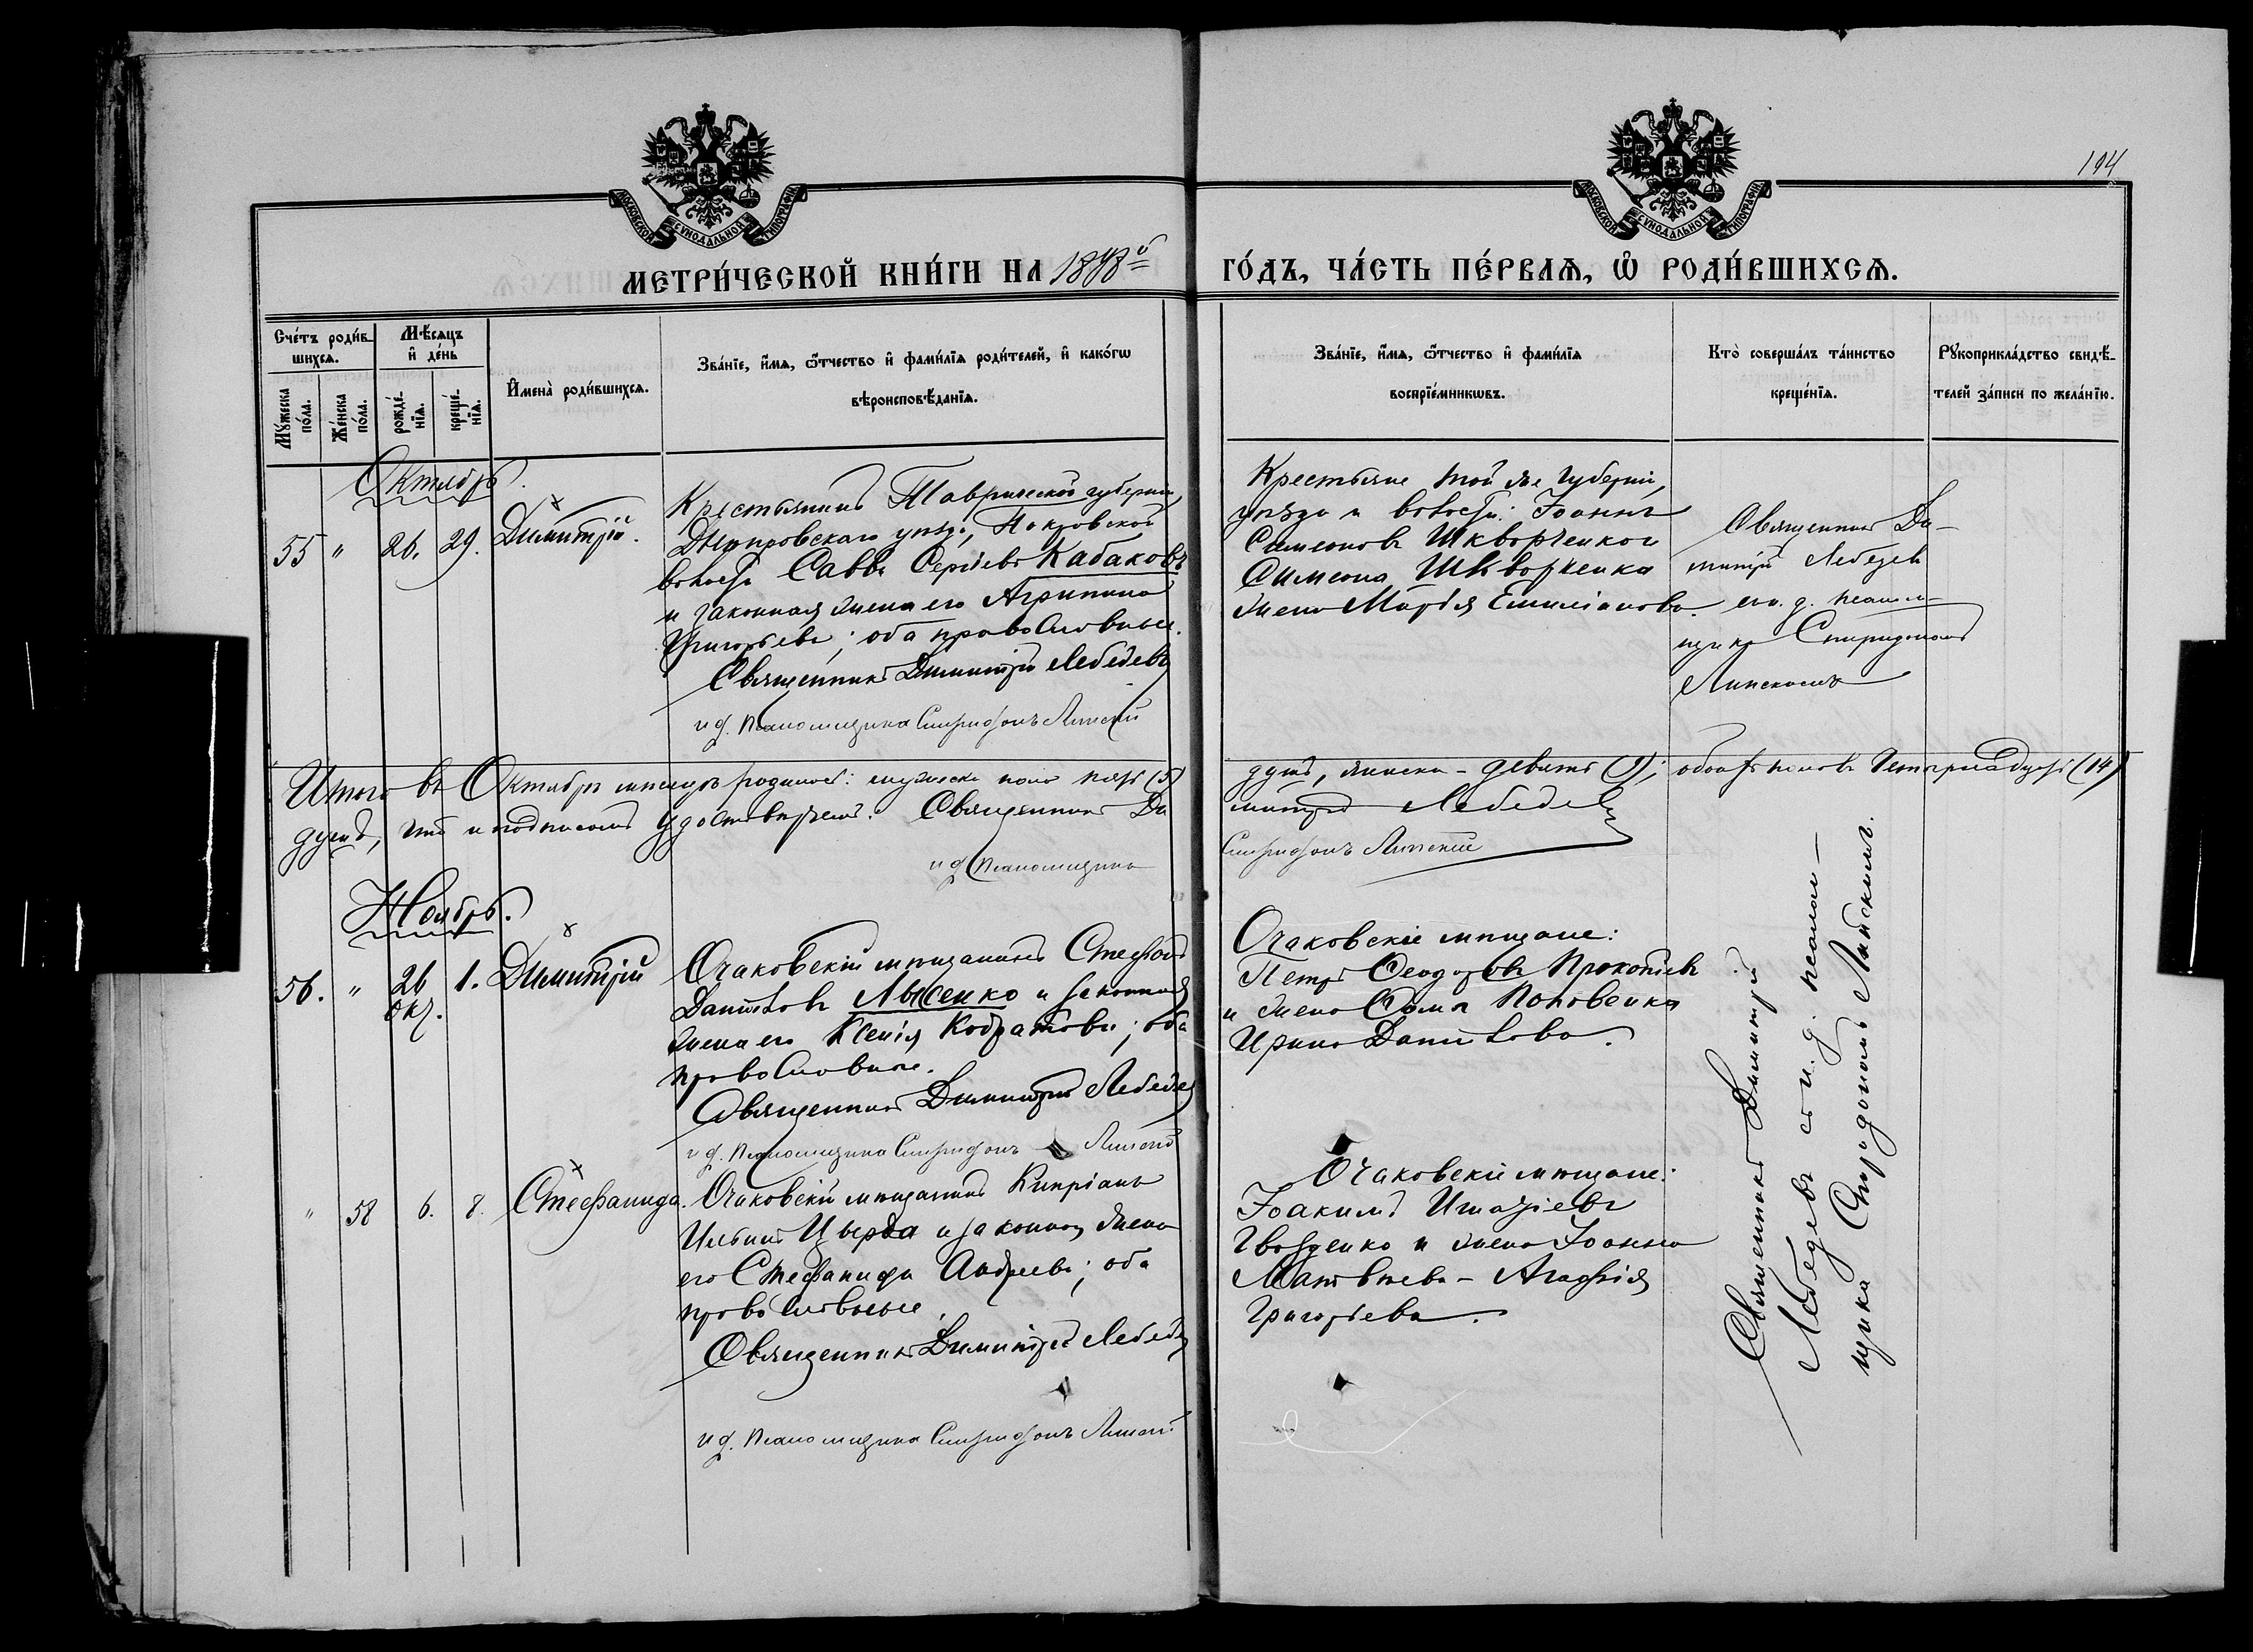 194
МОСКОВСКОЙ СѴНОДАЛЬНОЙ ТИПОГРАФІИ
МОСКОВСКОЙ СѴНОДАЛЬНОЙ ТИПОГРАФІИ
МЕТРИ́ЧЕСКОЙ КНИ́ГИ НА 18 ГО́ДЪ, ЧА́СТЬ ПЕ́РВАѦ, Ѡ҆ РОДИ́ВШИХСѦ.
Сче́тъ роди́в-
шихсѧ.
Мꙋ́жеска по́ла.
Же́нска по́ла.
Мѣ́сѧцъ и҆ де́нь
рожде́нїѧ.
креще́нїѧ.
И҆мена̀ роди́вшихсѧ.
Зва́нїе, и҆́мѧ, ѻ҆́тчество и҆ фами́лїѧ роди́телей, и҆ како́гѡ
вѣроисповѣ́данїѧ.
Зва́нїе, и҆́мѧ, ѻ҆́тчество и҆ фами́лїѧ
воспрїе́мникѡвъ.
Кто̀ соверша́лъ та́инство
креще́нїѧ.
Рꙋкоприкла́дство свидѣ́-
телей за́писи по жела́нїю.
Октябрь.
55 " 26. 29. Димитрій.
Крестьянинъ Таврической губерніи,
Днѣпровскаго уѣзда, Покровской
волости Савва Сергіевъ Кабаковъ
и законная жена его Агрипина
Григорьева; оба православные.
Священникъ Димитрій Лебедевъ
и д. псаломщика Спиридонъ Липскій
Крестьяне той же губерніи,
уѣзда и волости: Іоаннъ
Симеоновъ Шкворченко и
Симеона Шкворченка
жена Марія Емиліанова.
Священникъ Ди-
митрій Лебедевъ
съ и. д. псалом-
щика Спиридономъ
Липскимъ
Итого въ Октябрѣ мѣсяцѣ родилось: мужеска пола пять (5) душъ, женска - девять (9); обоего половъ четырнадцать (14)
душъ, что и подписомъ удостовѣряемъ. Священникъ Димитрій Лебедевъ
и д. псаломщика Спиридонъ Липскій
Ноябрь.
56. " 26 Окт. 1. Димитрій
Очаковскій мѣщанинъ Стефанъ
Даниловъ Лысенко и законная
жена его Ксенія Кодратова; оба
православные.
Священникъ Димитрій Лебедев
и д. псаломщика Спиридонъ Липскій
Очаковскіе мѣщане:
Петръ Ѳеодоровъ Прокопіевъ
и жена Поповенка
Ирина Данилова.
" 58 6. 8. Стефанида.
Очаковскій мѣщанинъ Кипріанъ
Ильинъ Цверда и законная жена
его Стефанида Андреева; оба
православные
Священникъ Димитрій Лебедев
и д. псаломщика Спиридонъ Липскій
Очаковскіе мѣщане:
Іоакимъ Игнатіевъ
Гвозденко и жена Іоанна
Матвѣева - Агафія
Григорьева.
Священникъ Димитрій
Лебедевъ съ и. д. псалом-
щика Спиридономъ Липскимъ.